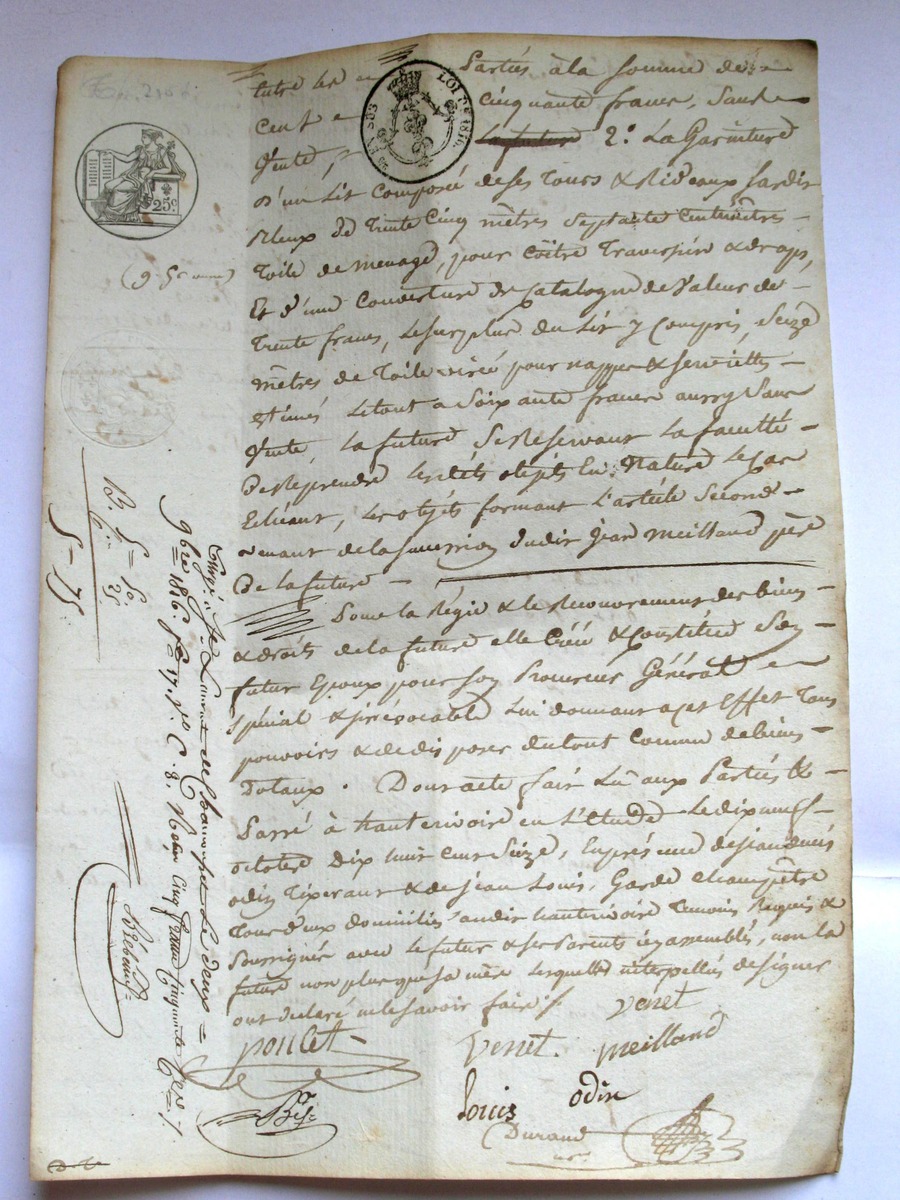 Parties à la somme de
cent cinquante francs, sans
Vente, la future 2.º La Garniture
D'un Lit Composée de ses Tours & Rideaux
de Trente Cinq mètres Septante Centimètres
Toile de menage, pour Coître Traversier & drap,
Et d'une Couverture de Catalogne de Valeur de
Trente francs, Le Surplus du Lit y Compris, Seize
mètres de Toile pour nappes & serviettes
Estimés Le tout a Soixante francs aussy Sans
Vente, La future Se Reservant La faculté
De Reprendre Les dits objets En Nature Le Cas
Echéant, Les objets formant L'article Second
venant de la succession dudit Jean Meilland père
De la future
Pour la Régie & le Recouvrement des biens
& droits de la future elle Créé & Constitue Son
futur Epoux pour Son Procureur Général
Spécial & irrévocable Lui donnant a cet Effet Tous
pouvoirs & de disposer du tout Comme de biens
Dotaux. Dont acte fait Lu aux Parties &
Passé à hauterivoire en L'Etude Le dix neuf
octobre Dix huit Cent Seize, En présence de
odin Tixerant & de Jean Louis, Garde champêtre
Tous deux domiciliés audit hauterivoire Témoins Requis &
Soussignés avec Le futur & ses Parents icy assemblés, non la
future non plus que sa mère Lesquelles interpellées de signer
ont déclaré ne le savoir faire
poncet
venet
Venet. meilland
Louis odin
Durand
LOI DE 1816.
25 c.
B. 5 = 50.
25
5 - 75
Enregé. à St. Laurent de Chamousset Le deux
9bre 1816. fº 17. Vº C. 8. Reçu Cinq francs Cinquante